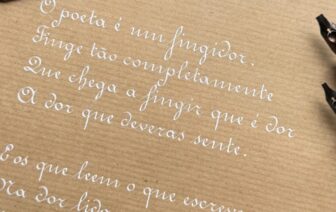 O poeta é um fingidor.
Finge tão completamente
Que chega a fingir que é dor
A dor que deveras sente.
E os que leem o que escreve
Na dor lida